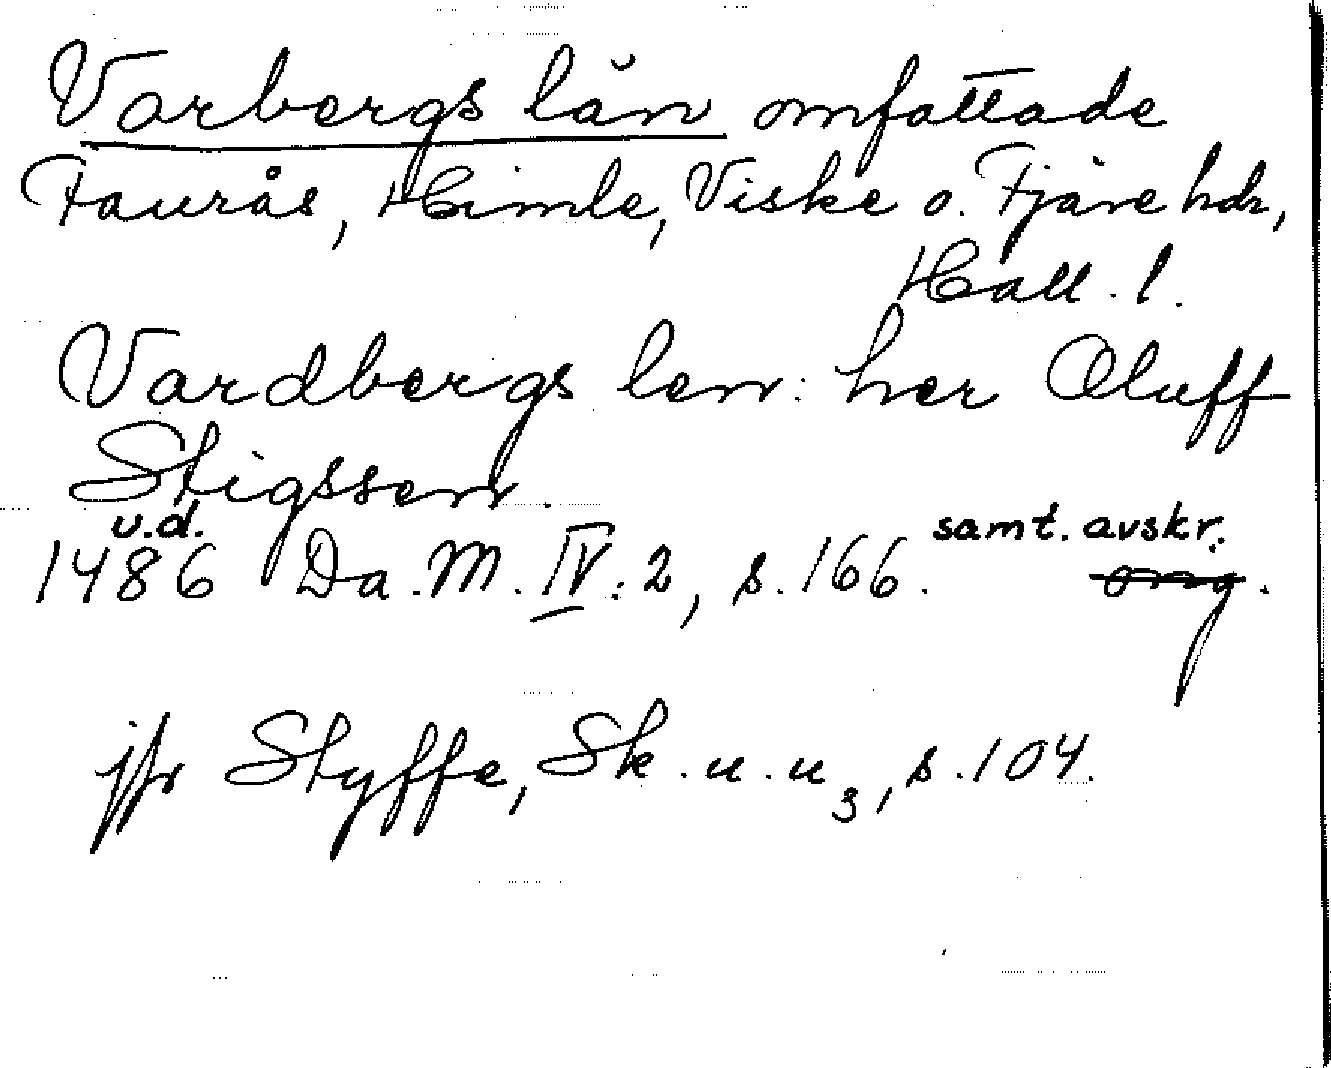 Varbergs län omfattade
Faurås, Himle, Viske o. Fjäre hdr,
Hall. l.
Vardbergs len: her Oluff
Stigssen.
u.d.
1486 Da. M. IV: 2, s. 166. samt. avskr.
orig.
jfr Styffe, Sk. u. u 3, s. 104.